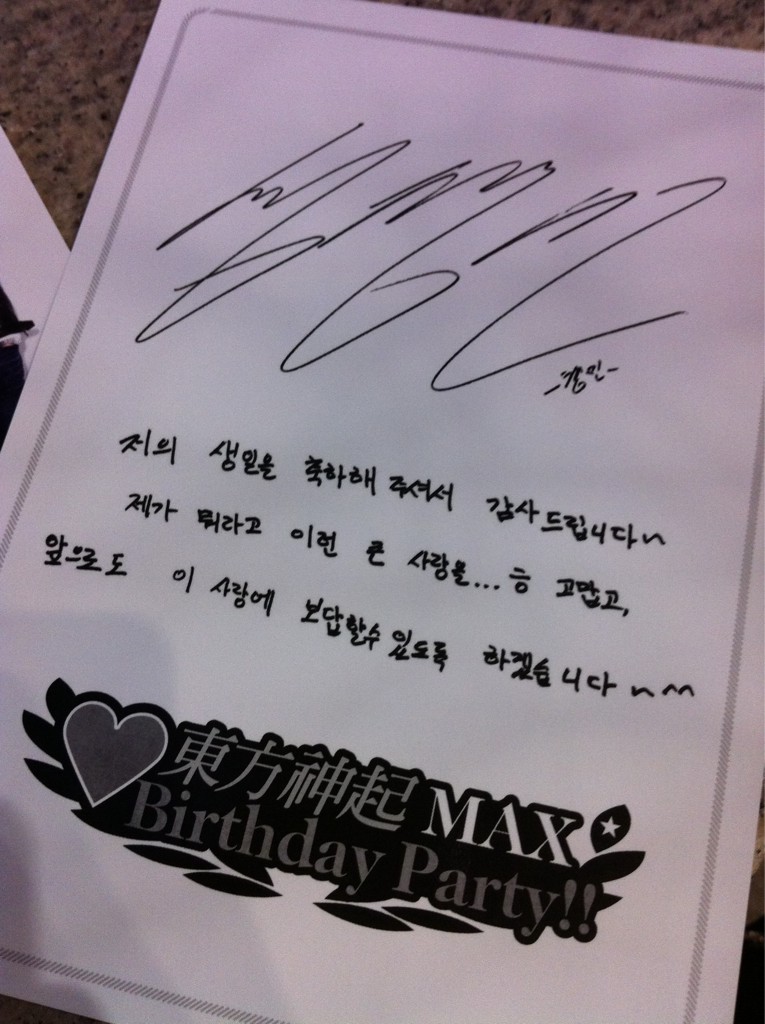 창민
저의 생일을 축하해 주셔서 감사드립니다~
제가 뭐라고 이런 큰 사랑을... 흥 고맙고,
앞으로도 이 사랑에 보답할수 있도록 하겠습니다~^^
東方神起 MAX
Birthday Party!!